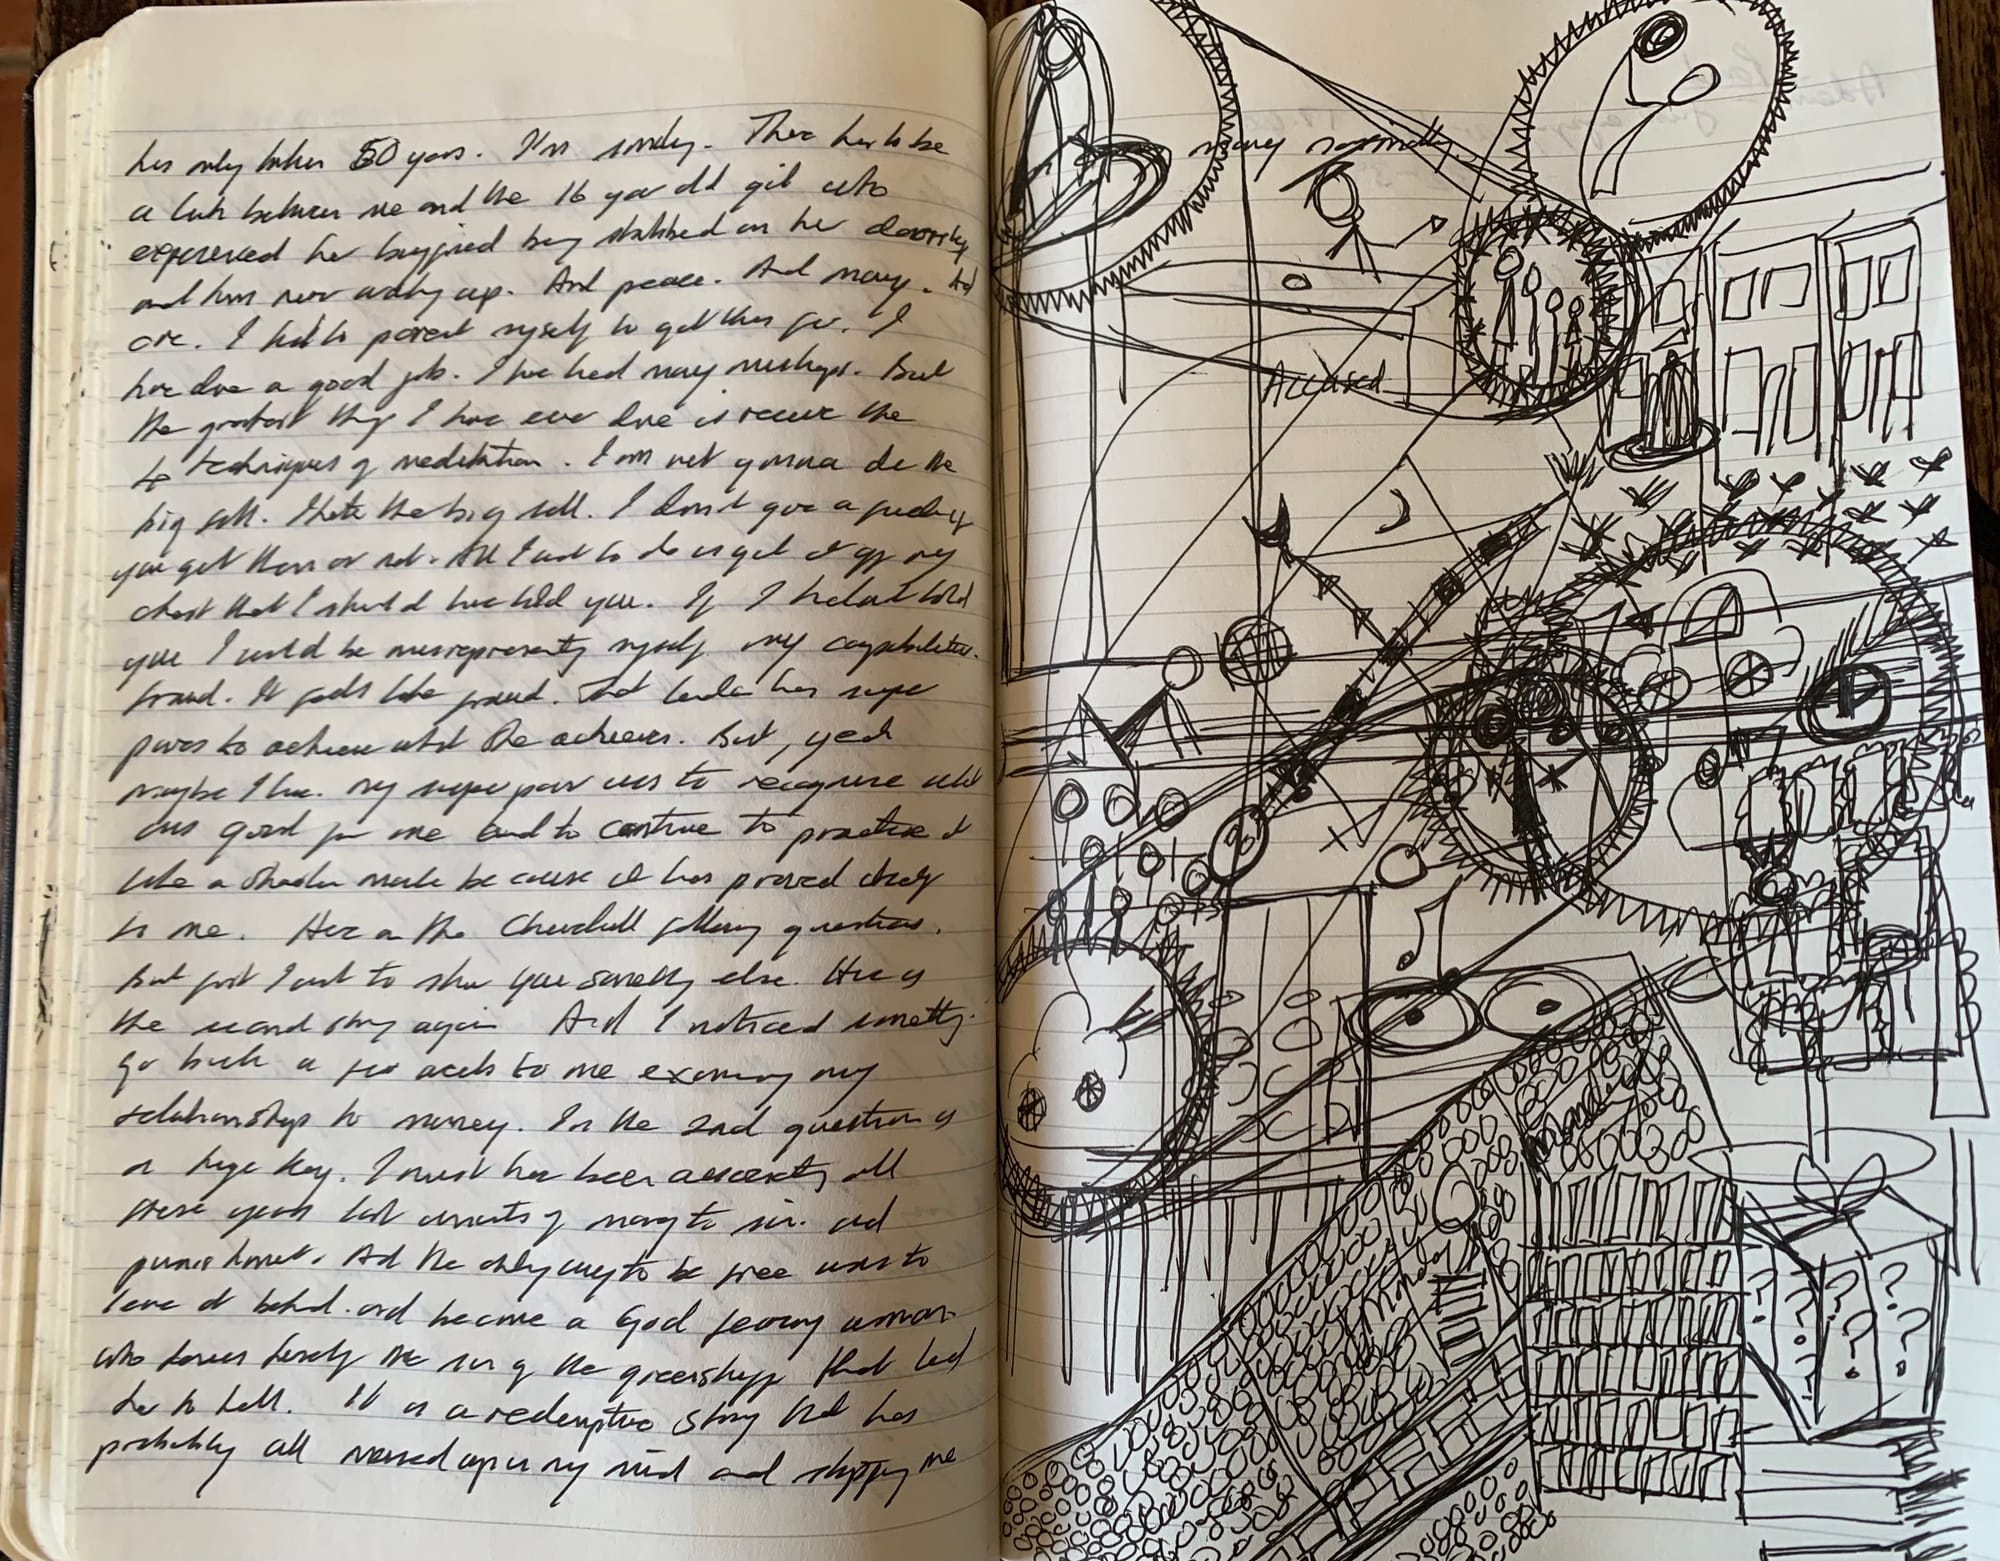 has only taken 50 years. I'm smiling. There has to be
a link between me and the 16 year old girl who
experienced her boyfriend being stabbed on her doorstep
and him never waking up. And peace. And money. And
I had to parent myself to get this far. I
have done a good job. I have had many mishaps. But
the greatest thing I have ever done is receive the
4 techniques of meditation. I am not gonna do the
big sell. I hate the big sell. I don't give a if
you get them or not. All I want to do is get it off my
chest that I should have told you. If I hadn't told
you I would be misrepresenting myself my capabilities.
fraud. It feels like fraud. That has super
powers to achieve what she achieves. But, yeah
maybe I have. My super power was to recognise what
was good for me and to continue to practise it
like a because it has proved
to me. Here are the Churchill following questions.
But first I want to show you something else. Here is
the second story again And I noticed something.
Go back a few weeks to me examining my
relationships to money. In the 2nd question is
a huge key. I must have been associating all
these years last amounts of money to sin and
punishment. And the only way to be free was to
leave it behind and become a God fearing woman
who the sin of the that led
her to hell. It is a redemptive story that has
probably all messed up in my mind and stopping me
money normally.
Accused
Monday
Monday
? ? ? ?